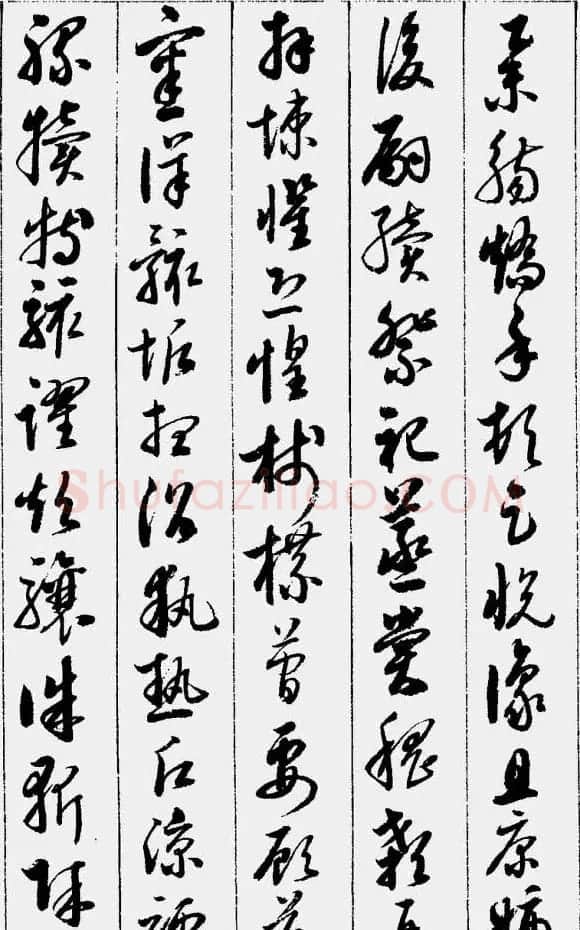 舉觴矯手頓足悅豫且康嫡
後嗣續祭祀蒸嘗稽顙再
拜悚懼恐惶牋牒簡要顧答
審詳骸垢想浴執熱願涼驢
騾犢特駭躍超驤誅斬賊
Shufaziliao.COM